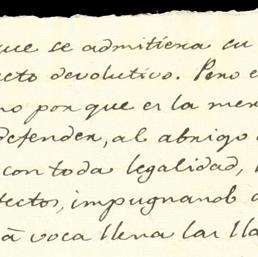 que se admitiera su
ecto devolutivo. Pero e
no por que es la mer
defender, al abrigo
con toda legalidad,
fectos, impugnando
á voca llena las lla